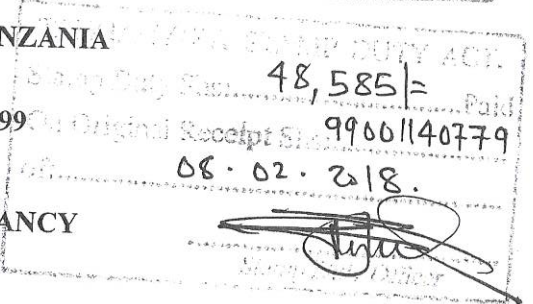 NZANIA
STAMP DUTY ACT.
Stamp Duty Shs. 48,585/= Paid
99 On Original Receipt 99001140779
of 08.02.2018.
ANCY
Officer